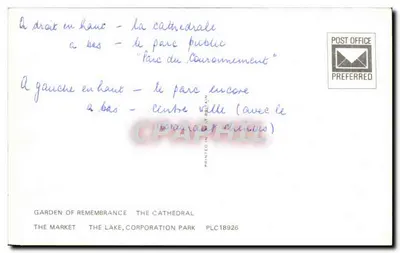 A droit en haut - la cathédrale
a bas - le parc public
"Parc du Couronnement"
A gauche en haut - le parc encore
a bas - centre ville (avec le
POST OFFICE
PREFERRED
CPARAMA
PRINTED IN
GARDEN OF REMEMBRANCE THE CATHEDRAL
THE MARKET THE LAKE, CORPORATION PARK PLC18926